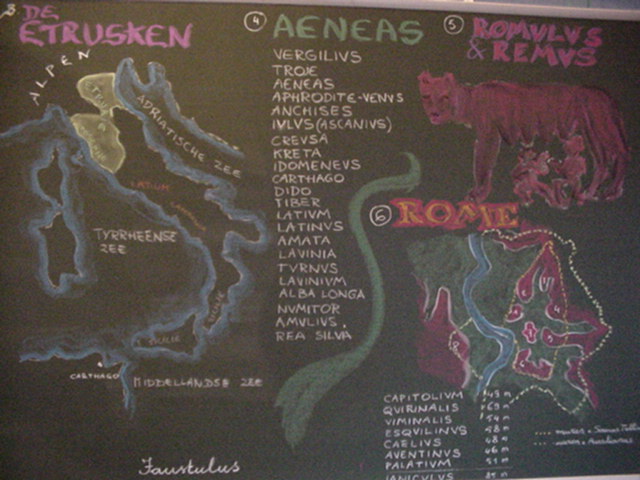 3 DE
ETRUSKEN
ALPEN
ADRIATISCHE ZEE
LATIUM
TYRRHEENSE
ZEE
CARTHAGO
MIDDELLANDSE ZEE
4 AENEAS
VERGILIUS
TROJE
AENEAS
APHRODITE-VENUS
ANCHISES
IULUS (ASCANIUS)
CREUSA
KRETA
IDOMENEUS
CARTHAGO
DIDO
TIBER
LATIUM
LATINUS
AMATA
LAVINIA
TURNUS
LAVINIUM
ALBA LONGA
NUMITOR
AMULIUS,
REA SILVA
Faustulus
5 ROMULUS
& REMUS
6 ROME
CAPITOLIUM 49 m
QUIRINALIS 69 m
VIMINALIS 54 m
ESQUILINUS
CAELIUS 48 m
AVENTINUS 46 m
PALATIUM 51 m
IANICULUS